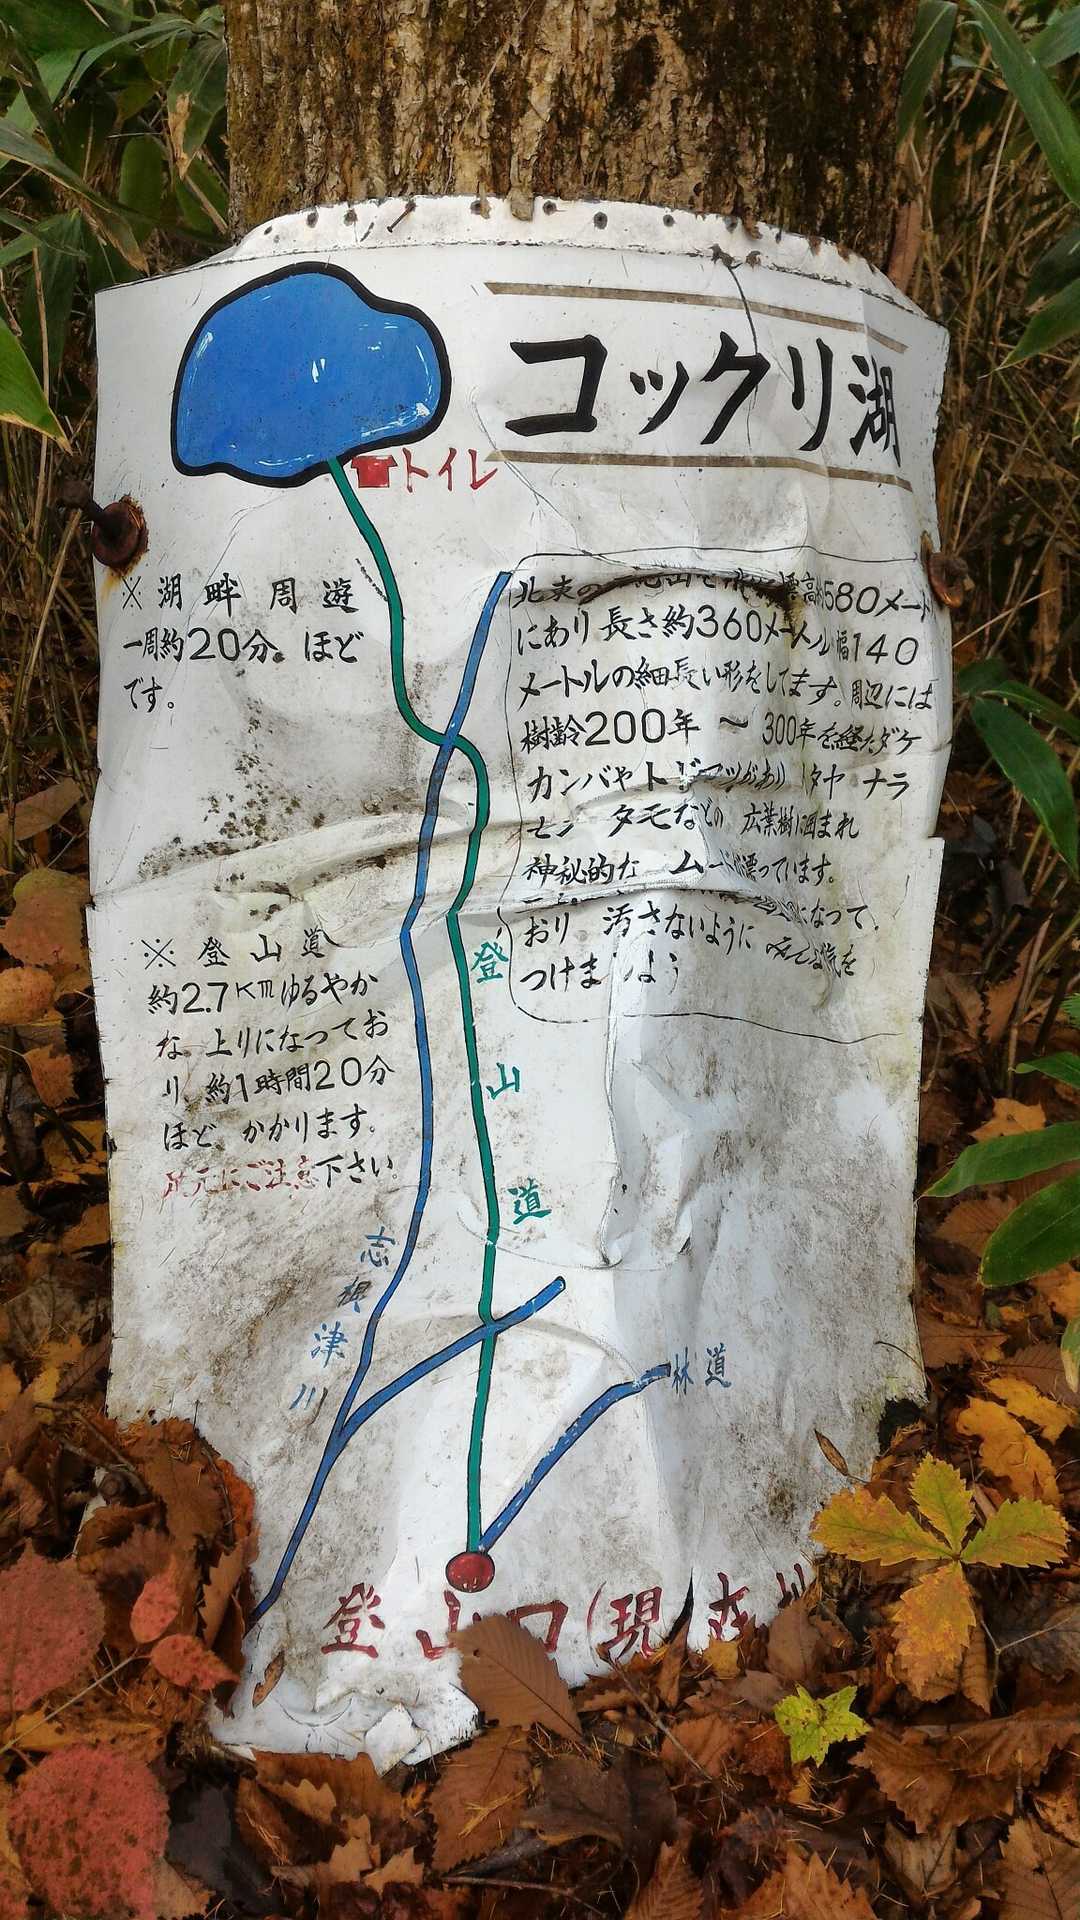 コックリ湖
トイレ
※ 湖畔周遊
一周約20分 ほど
です。
標高 580メート
にあり 長さ約360メートル 幅140
メートルの細長い形をしてます。周辺には
樹齢200年 ～ 300年を経たダケ
カンバやトドマツがあり イタヤ ナラ
タモなどの 広葉樹に囲まれ
神秘的な ム 漂っています。
になって
おり 汚さないように 気を
つけま しょう
※ 登山道
約2.7Kmゆるやか
な 上りになってお
り 約1時間20分
ほど かかります。
足元にご注意下さい
登山道
志根津川
林道
登山口(現在地